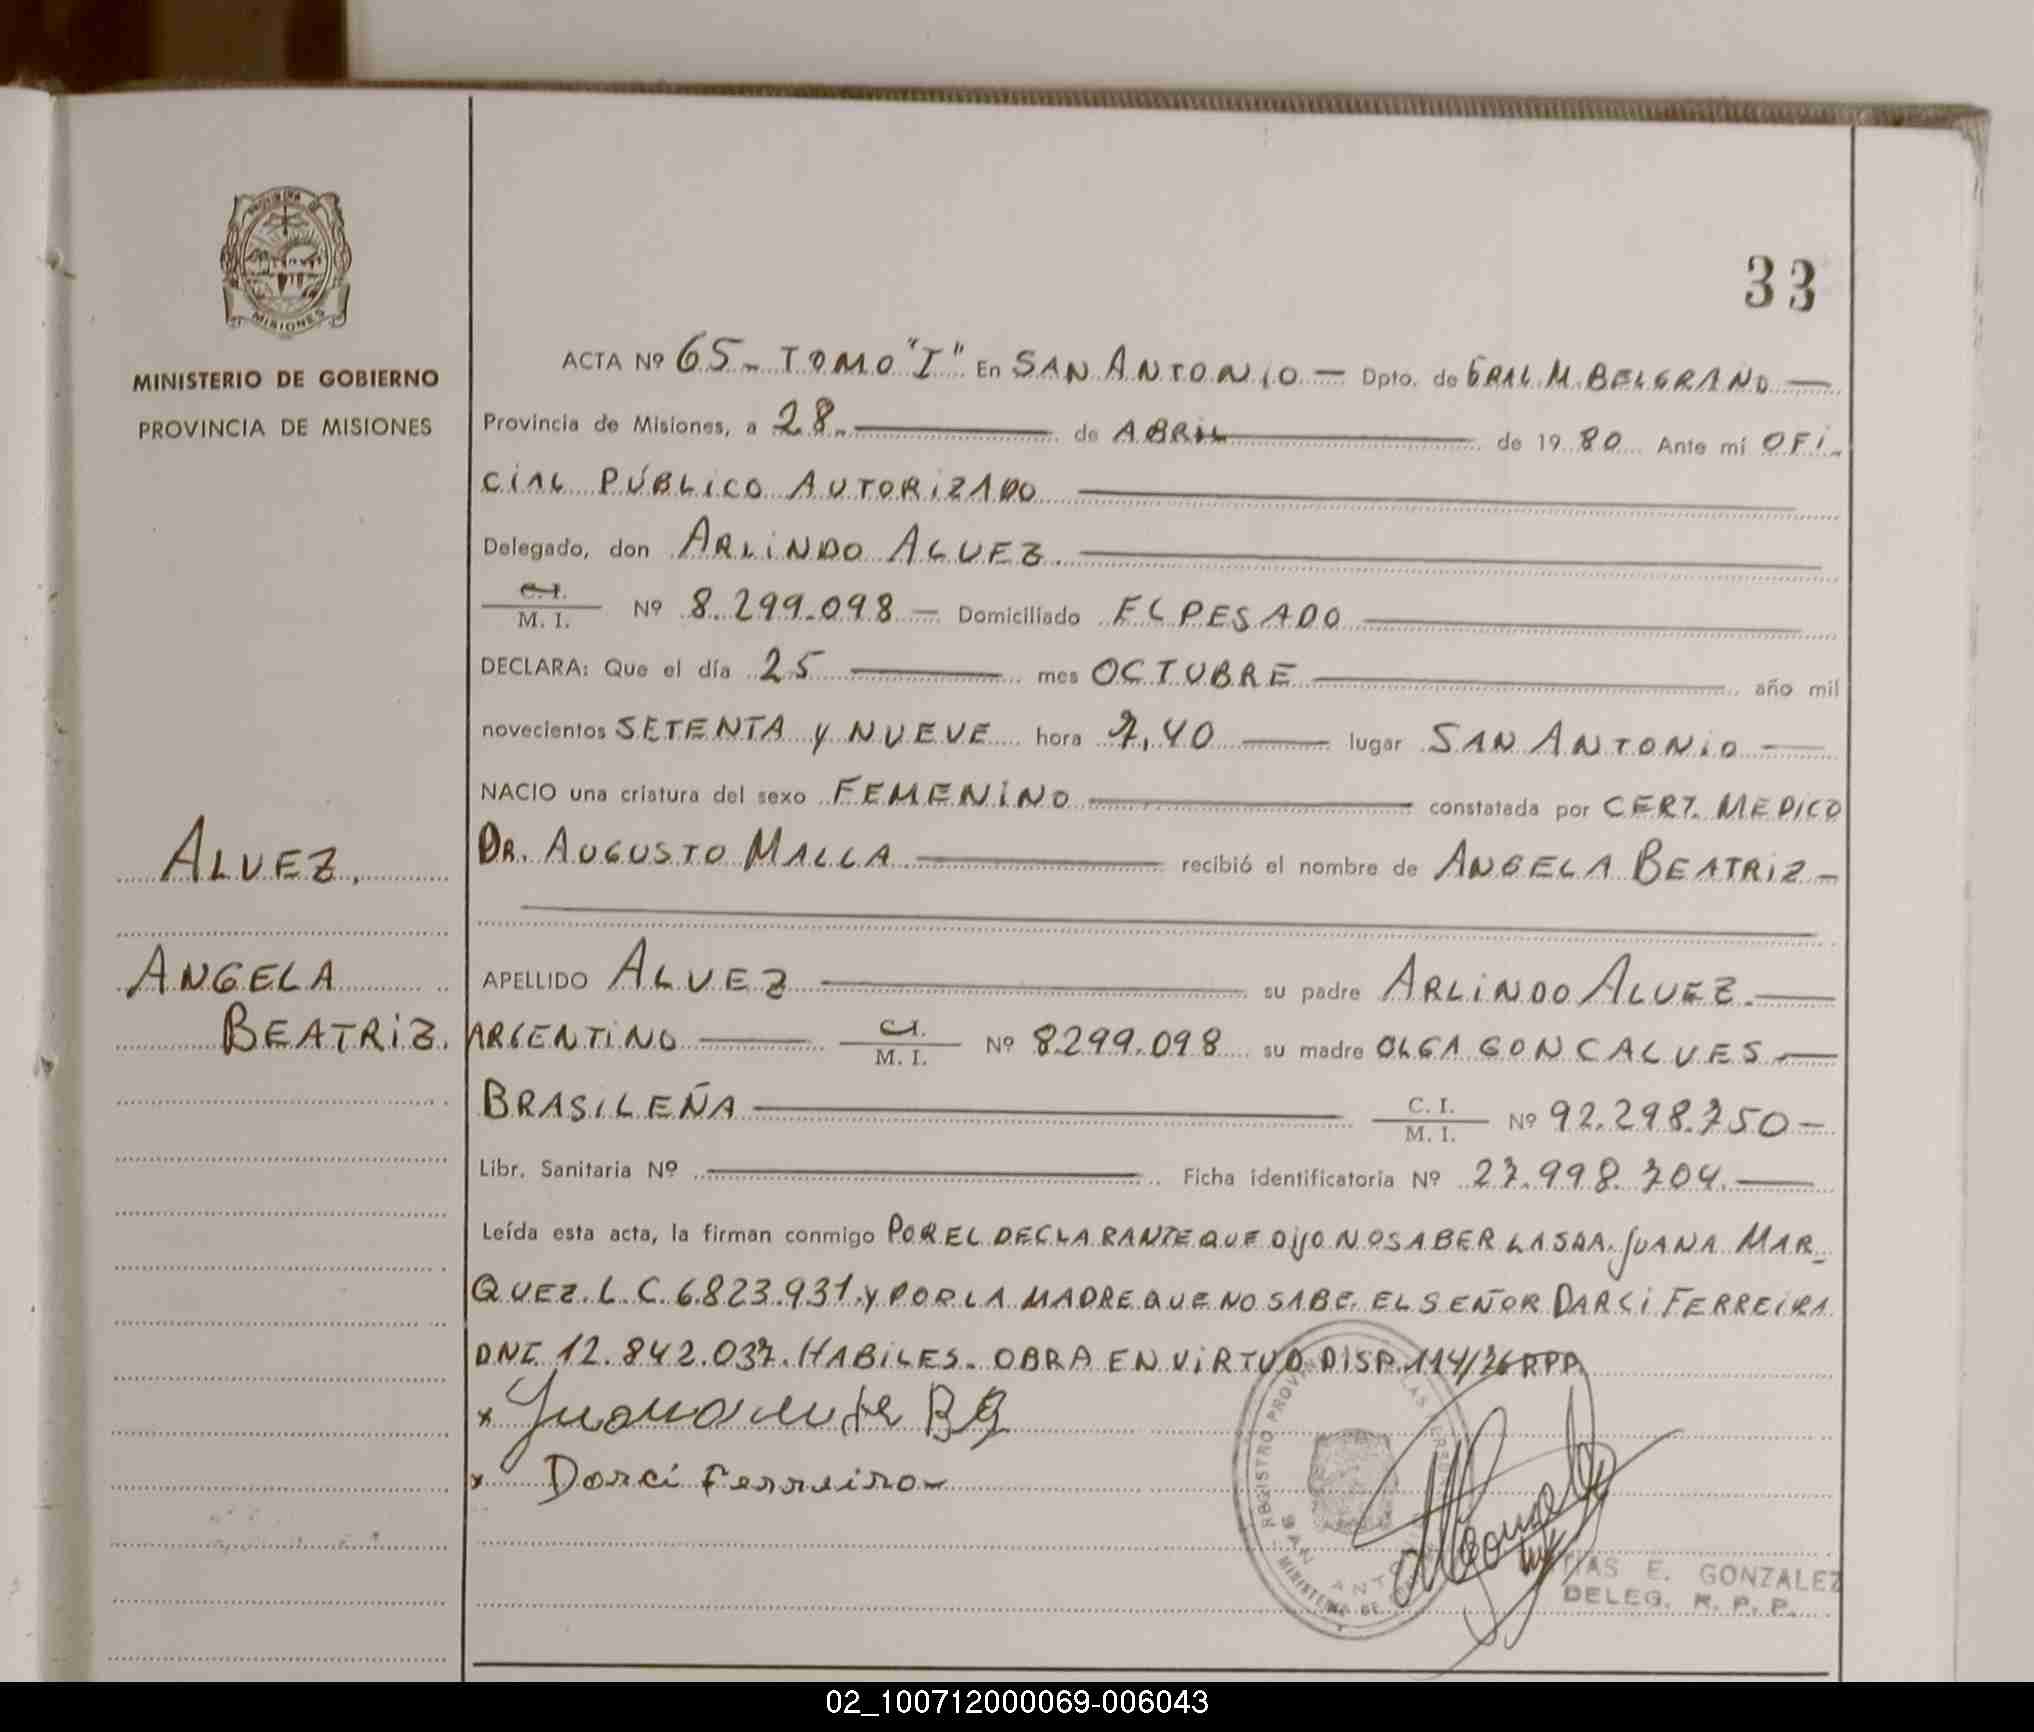 33
MINISTERIO DE GOBIERNO
PROVINCIA DE MISIONES
MISIONES
ALVEZ,
ANGELA
BEATRIZ.
ACTA Nº 65- TOMO "I" En SAN ANTONIO — Dpto. de GRAL M. BELGRANO —
Provincia de Misiones, a 28- de ABRIL de 19 80 Ante mí OFI-
CIAL PÚBLICO AUTORIZADO
Delegado, don ARLINDO ALVEZ.
C. I.
M. I. Nº 8.299.098 — Domiciliado EL PESADO
DECLARA: Que el día 25 mes OCTUBRE año mil
novecientos SETENTA y NUEVE hora 7,40 lugar SAN ANTONIO
NACIO una criatura del sexo FEMENINO constatada por CERT. MEDICO
DR. AUGUSTO MALLA recibió el nombre de ANGELA BEATRIZ-
APELLIDO ALVEZ su padre ARLINDO ALVEZ.
ARGENTINO C.I. M. I. Nº 8299.098 su madre OLGA GONCALVES
BRASILEÑA C. I. M. I. Nº 92.298.750-
Libr. Sanitaria Nº Ficha identificatoria Nº 27.998.704.
Leída esta acta, la firman conmigo POR EL DECLARANTE QUE DIJO NO SABER LA SRA. JUANA MAR-
QUEZ. L. C. 6.823.931. y POR LA MADRE QUE NO SABE. EL SEÑOR DARCI FERREIRA
DNI. 12.842.037. HABILES. OBRA EN VIRTUD DISP. 114/76 RPP
x
x Darci Ferreira
REGISTRO PROVINCIAL DE LAS PERSONAS
SAN ANTONIO
MINISTERIO DE GOBIERNO
E. GONZALEZ
DELEG. R. P. P.
02_100712000069-006043